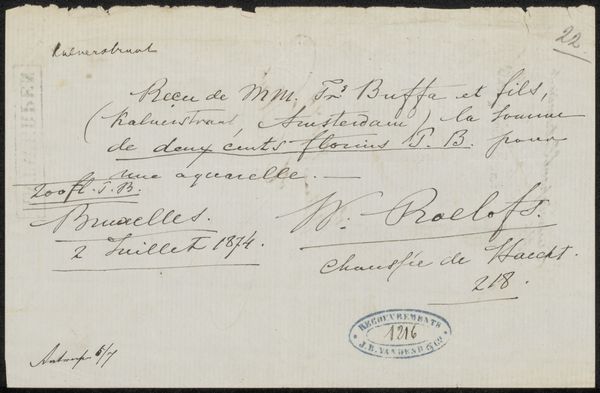 Kalverstraat
22
Reçu de MM. Frs Buffa et fils,
(Kalverstraat, Amsterdam) la somme
de deux cents florins P. B. pour
une aquarelle. —
200 fl. P. B.
Bruxelles.
2 Juillet 1874.
W. Roelofs.
Chaussée de Haecht.
218.
RECOUVREMENTS
1216
J.B. VANDEND & Cie
Antwerp 6/7